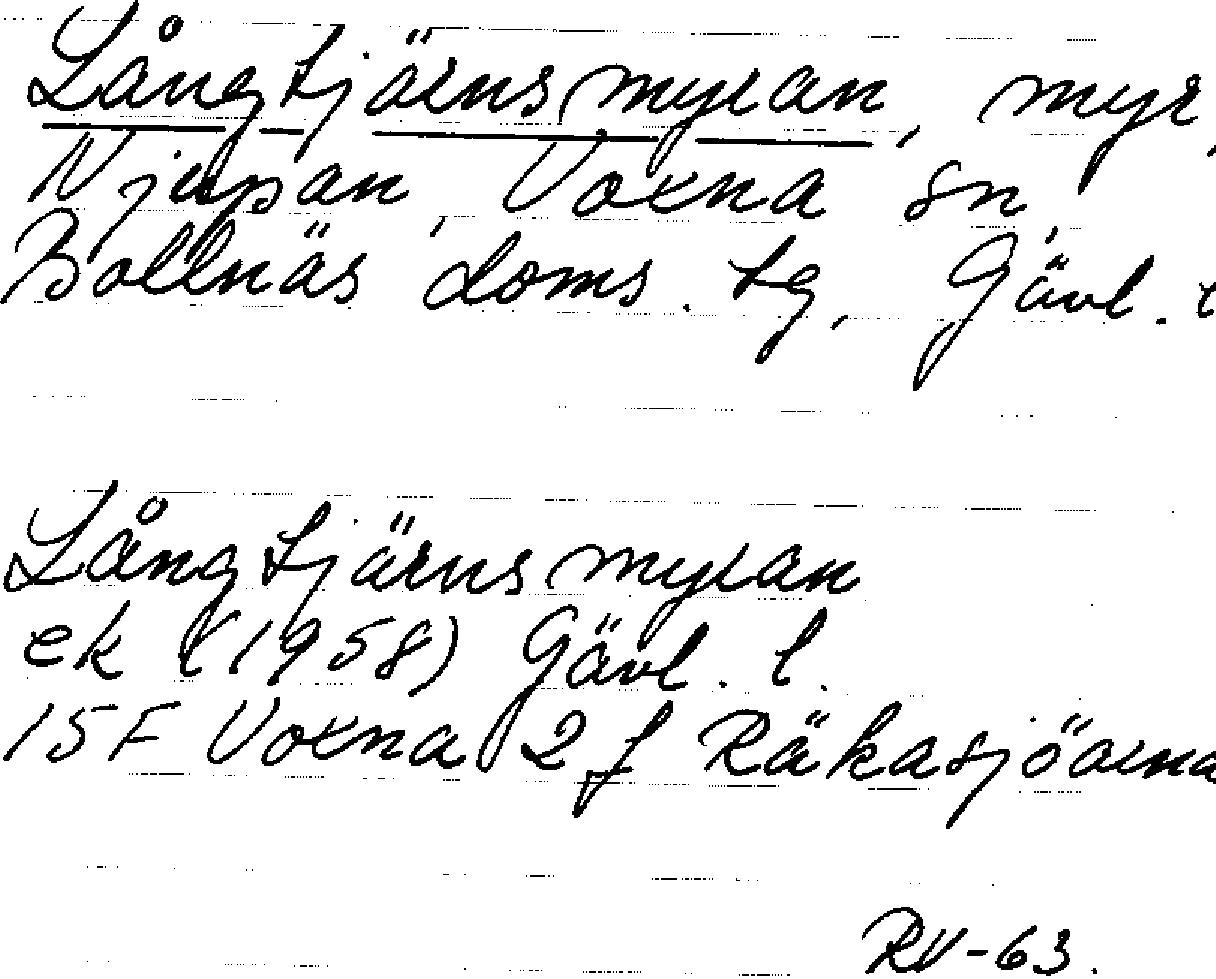 Långtjärnsmyran, myr,
Njupan, Voxna sn,
Bollnäs doms. tg, Gävl. l
Långtjärnsmyran
ek (1958) Gävl. l.
15F Voxna 2 f Räkasjöarna
RV-63.